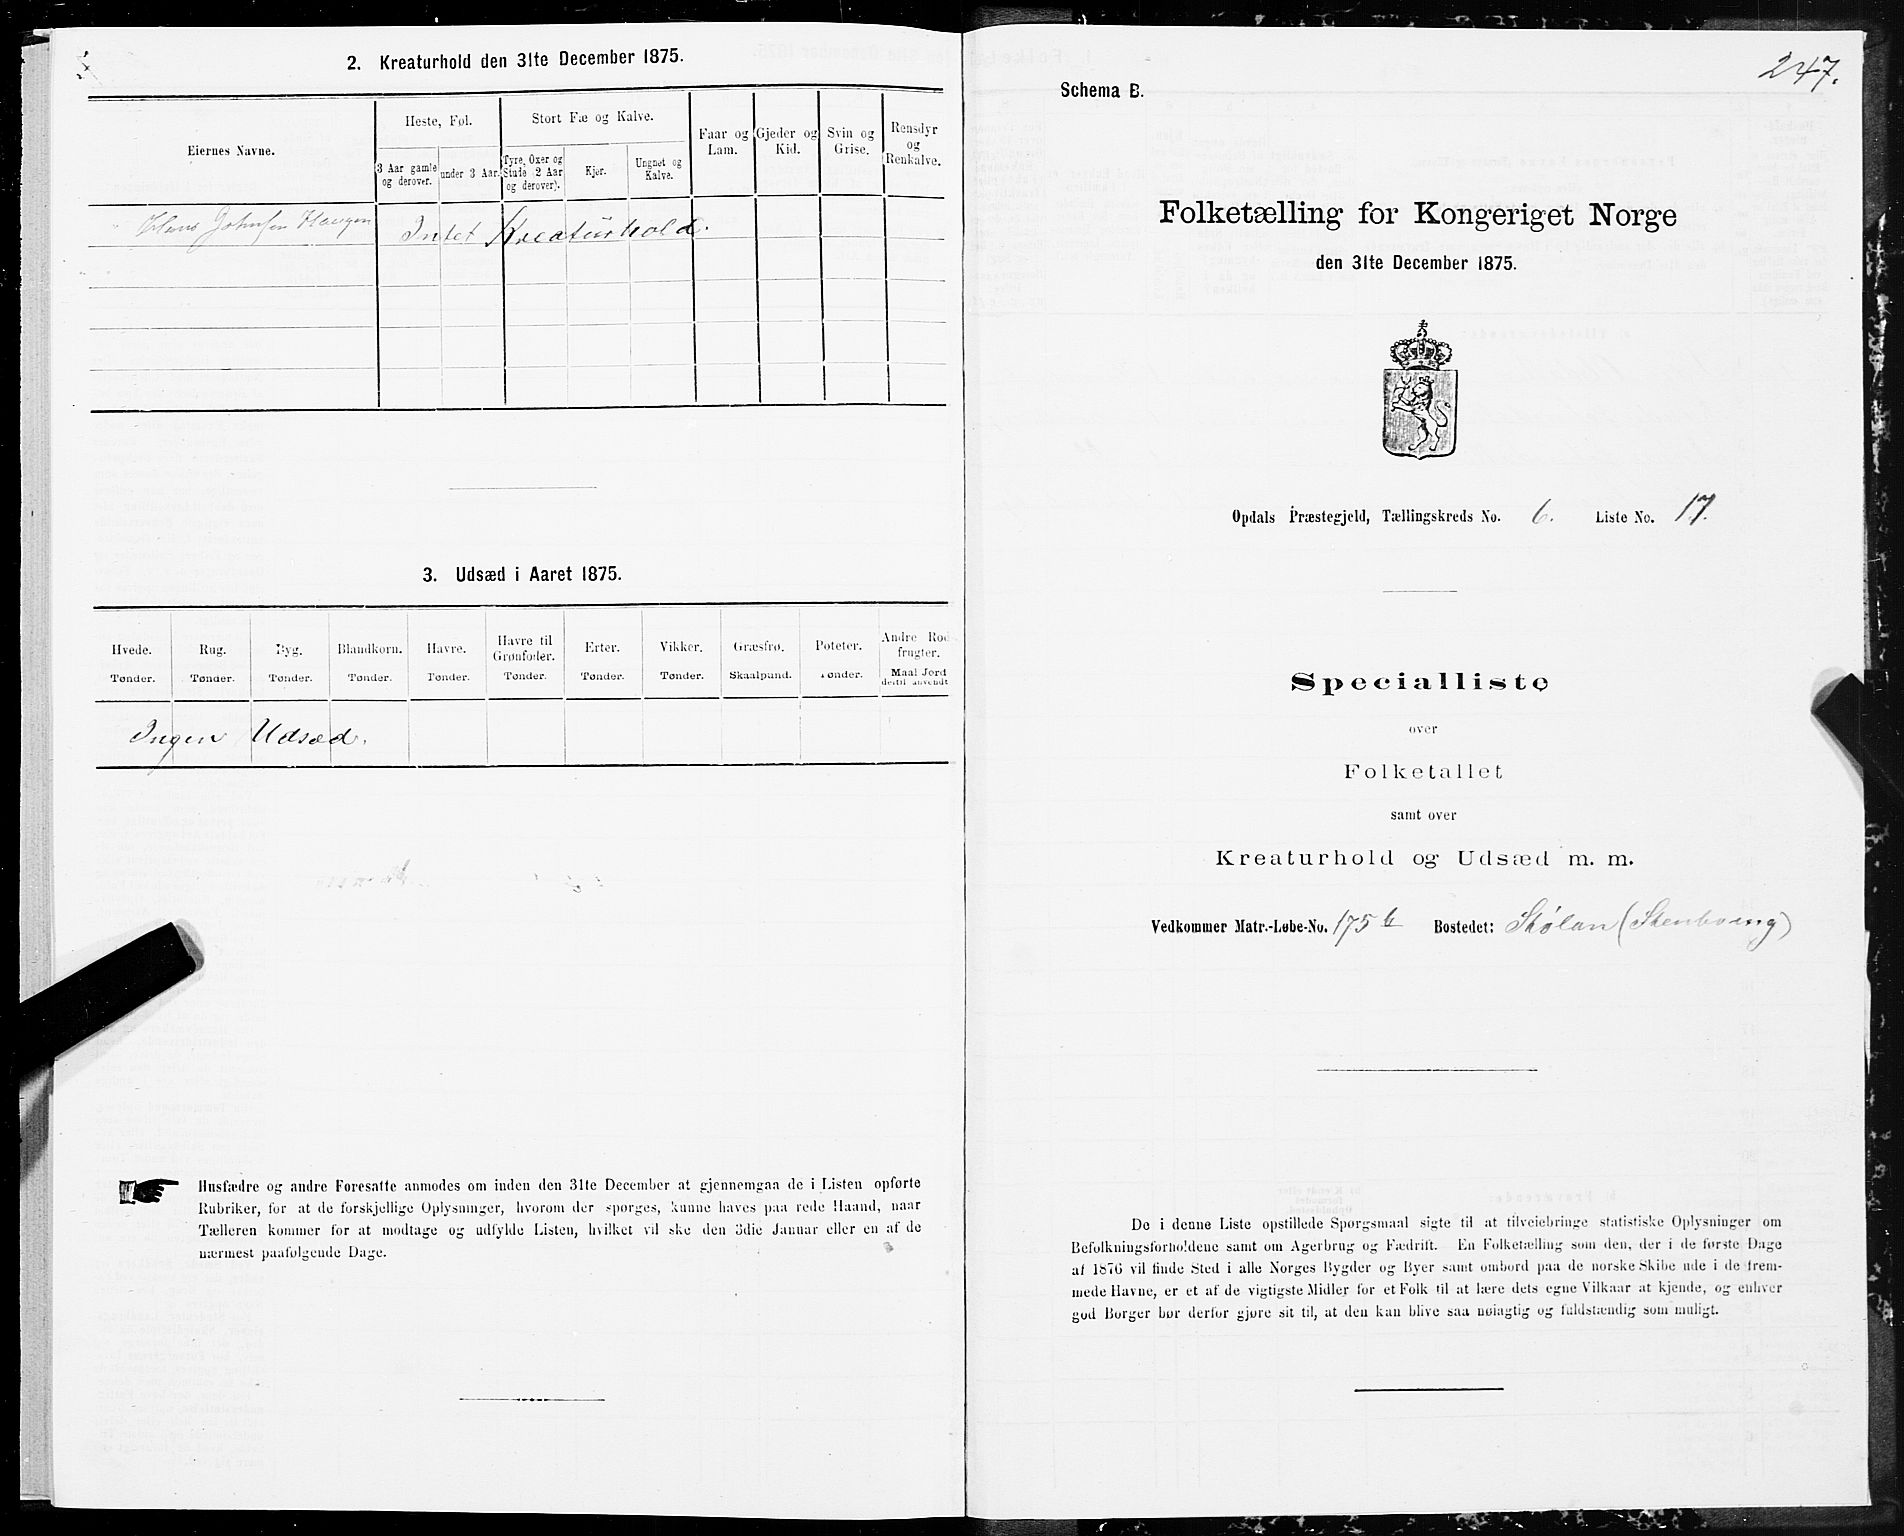 2. Kreaturhold den 31te December 1875.
Eiernes Navne.
Heste, Føl.
Stort Fæ og Kalve.
Faar og Lam.
Gjeder og Kid.
Svin og Grise.
Rensdyr og Renkalve.
3 Aar gamle og derover.
under 3 Aar.
Tyre, Oxer og Stude (2 Aar og derover).
Kjør.
Ungnøt og Kalve.
Hans Johnsen Haugen Intet Kreaturhold.
3. Udsæd i Aaret 1875.
Hvede. Rug. Byg. Blandkorn. Havre. Havre til Grønfoder. Erter. Vikker. Græsfrø. Poteter. Andre Rodfrugter.
Tønder. Tønder. Tønder. Tønder. Tønder. Tønder. Tønder. Tønder. Skaalpund. Tønder. Maal Jord dertil anvendt.
Ingen Udsæd.
Husfædre og andre Foresatte anmodes om inden den 31te December at gjennemgaa de i Listen opførte
Rubriker, for at de forskjellige Oplysninger, hvorom der spørges, kunne haves paa rede Haand, naar
Tælleren kommer for at modtage og udfylde Listen, hvilket vil ske den 3die Januar eller en af de
nærmest paafølgende Dage.
247.
Schema B.
Folketælling for Kongeriget Norge
den 31te December 1875.
Opdals Præstegjeld, Tællingskreds No. 6. Liste No. 17.
Specialliste
over
Folketallet
samt over
Kreaturhold og Udsæd m. m.
Vedkommer Matr.-Løbe-No. 175 b Bostedet: Stølan (Stenboeng)
De i denne Liste opstillede Spørgsmaal sigte til at tilveiebringe statistiske Oplysninger om
Befolkningsforholdene samt om Agerbrug og Fædrift. En Folketælling som den, der i de første Dage
af 1876 vil finde Sted i alle Norges Bygder og Byer samt ombord paa de norske Skibe ude i de frem-
mede Havne, er et af de vigtigste Midler for et Folk til at lære dets egne Vilkaar at kjende, og enhver
god Borger bør derfor gjøre sit til, at den kan blive saa nøiagtig og fuldstændig som muligt.